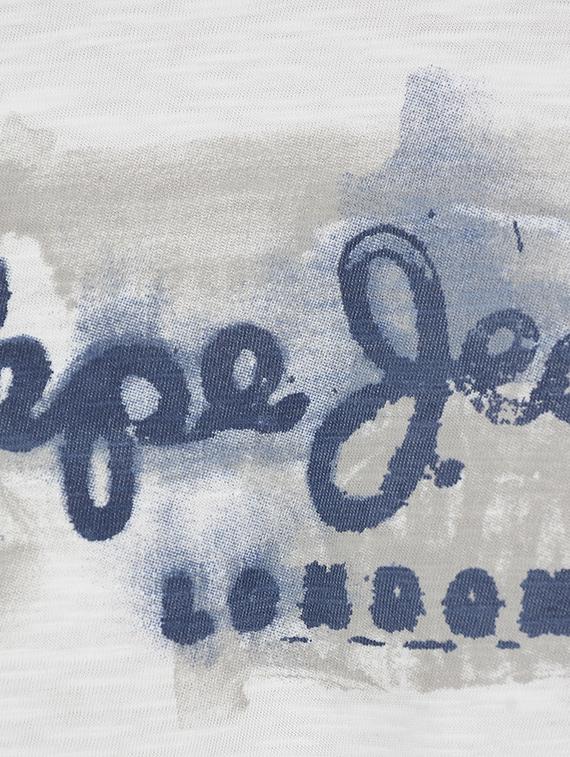 epe Je
LONDON